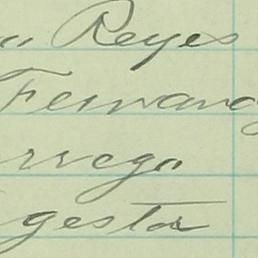 a Reyes
Fernand
rrega
gesta